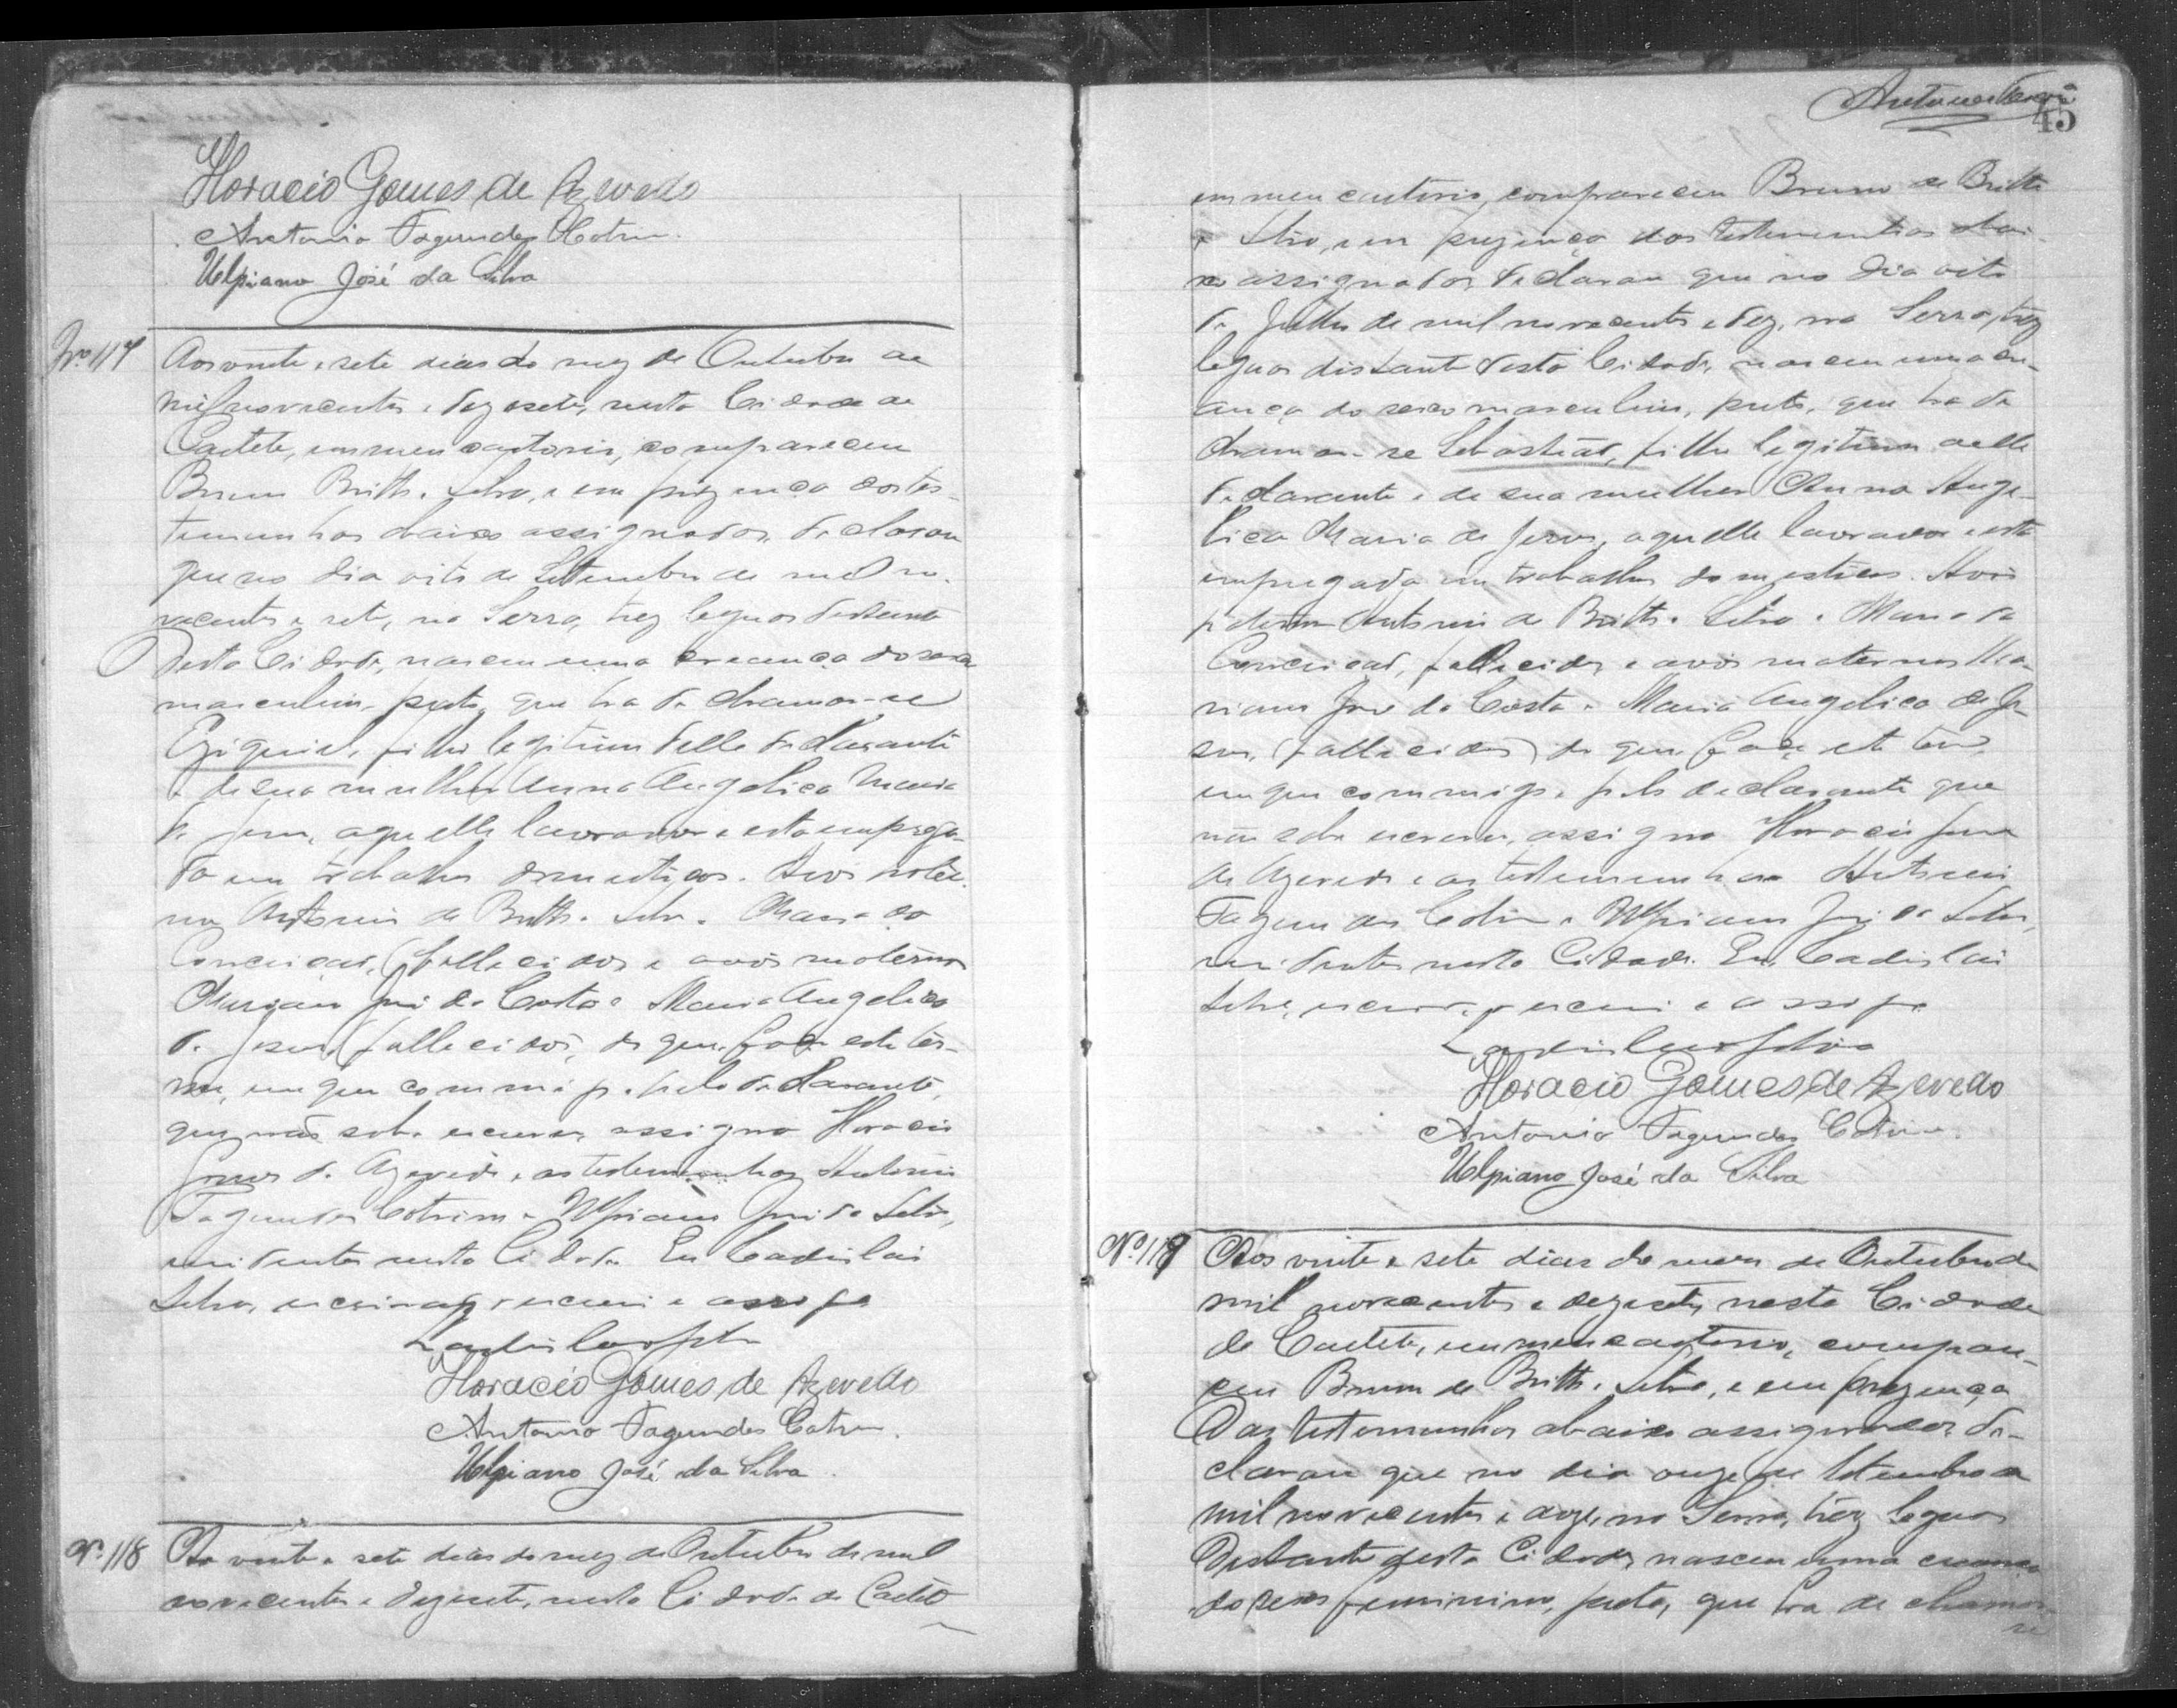 Horacio Gomes de Azevedo
Antonio Fagundes Cotrim
Ulpiano José da Silva
Nº 117
Aos vinte e sete dias do mez de Outubro de
mil novecentos e dezesete, nesta Cidade de
Caeteté, em meu cartorio, compareceu
Bruno Britto e Silva, e em prezença das tes-
temunhas abaixo assignadas, declarou
que no dia oito de Setembro de mil no-
vecentos e sete, na Serra, trez leguas distante
desta Cidade, nasceu uma creança do sexo
masculino, preto, que ha de chamar-se
Eziquiel, filho legitimo delle declarante
e de sua mulher Anna Angelica Maria
de Jesus, aquelle lavrador e esta emprega-
da em trabalhos domesticos. Avós pater-
nos Antonio de Britto e Silva e Maria da
Conceição, (fallecidos e avós maternos
Mariano José da Costa e Maria Angelica
de Jesus (fallecidos), do que, faço este ter-
mo, em que commigo, pelo declarante,
que não sabe escrever, assigna Horacio
Gomes de Azevedo, e as testemunhas Antonio
Fagundes Cotrim e Ulpiano José da Silva,
residentes nesta Cidade. Eu Ladislau
Silva, escrivão, escrevi e assigno
Ladislau Silva
Horacio Gomes de Azevedo
Antonio Fagundes Cotrim.
Ulpiano José da Silva.
Nº 118
Aos vinte e sete dias do mez de Outubro de mil
novecentos e dezesete, nesta Cidade de Caeteté
45
em meu cartorio, compareceu Bruno de Britto
e Silva, e em prezença das testemunhas abai-
xo assignadas, declarou que no dia oito
de Julho de mil novecentos e dez, na Serra, trez
leguas distante desta Cidade, nasceu uma cre-
ança do sexo masculino, preto, que ha de
chamar-se Sebastião, filho legitimo delle
declarante e de sua mulher Anna Ange-
lica Maria de Jesus, aquelle lavrador e esta
empregada em trabalhos domesticos. Avós
paternos Antonio de Britto e Silva e Maria da
Conceição, fallecidos, e avós maternos Ma-
riano José da Costa e Maria Angelica de Je-
sus, (fallecidos) do que, faço este termo,
em que commigo, pelo declarante que
não sabe escrever, assigna Horacio Gomes
de Azevedo e as testemunhas Antonio
Fagundes Cotrim e Ulpiano José da Silva,
residentes nesta Cidade. Eu, Ladislau
Silva, escrivão, escrevi e assigno
Ladislau Silva
Horacio Gomes de Azevedo
Antonio Fagundes Cotrim.
Ulpiano José da Silva
Nº 119
Aos vinte e sete dias do mez de Outubro de
mil novecentos e dezesete, nesta Cidade
de Caeteté, em meu cartorio, compare-
ceu Bruno de Britto e Silva, e em prezença
das testemunhas abaixo assignadas, de-
clarou que no dia onze de Setembro de
mil novecentos e doze, na Serra, trez leguas
distante desta Cidade, nasceu uma creança
do sexo feminino, preta, que ha de chamar-
se